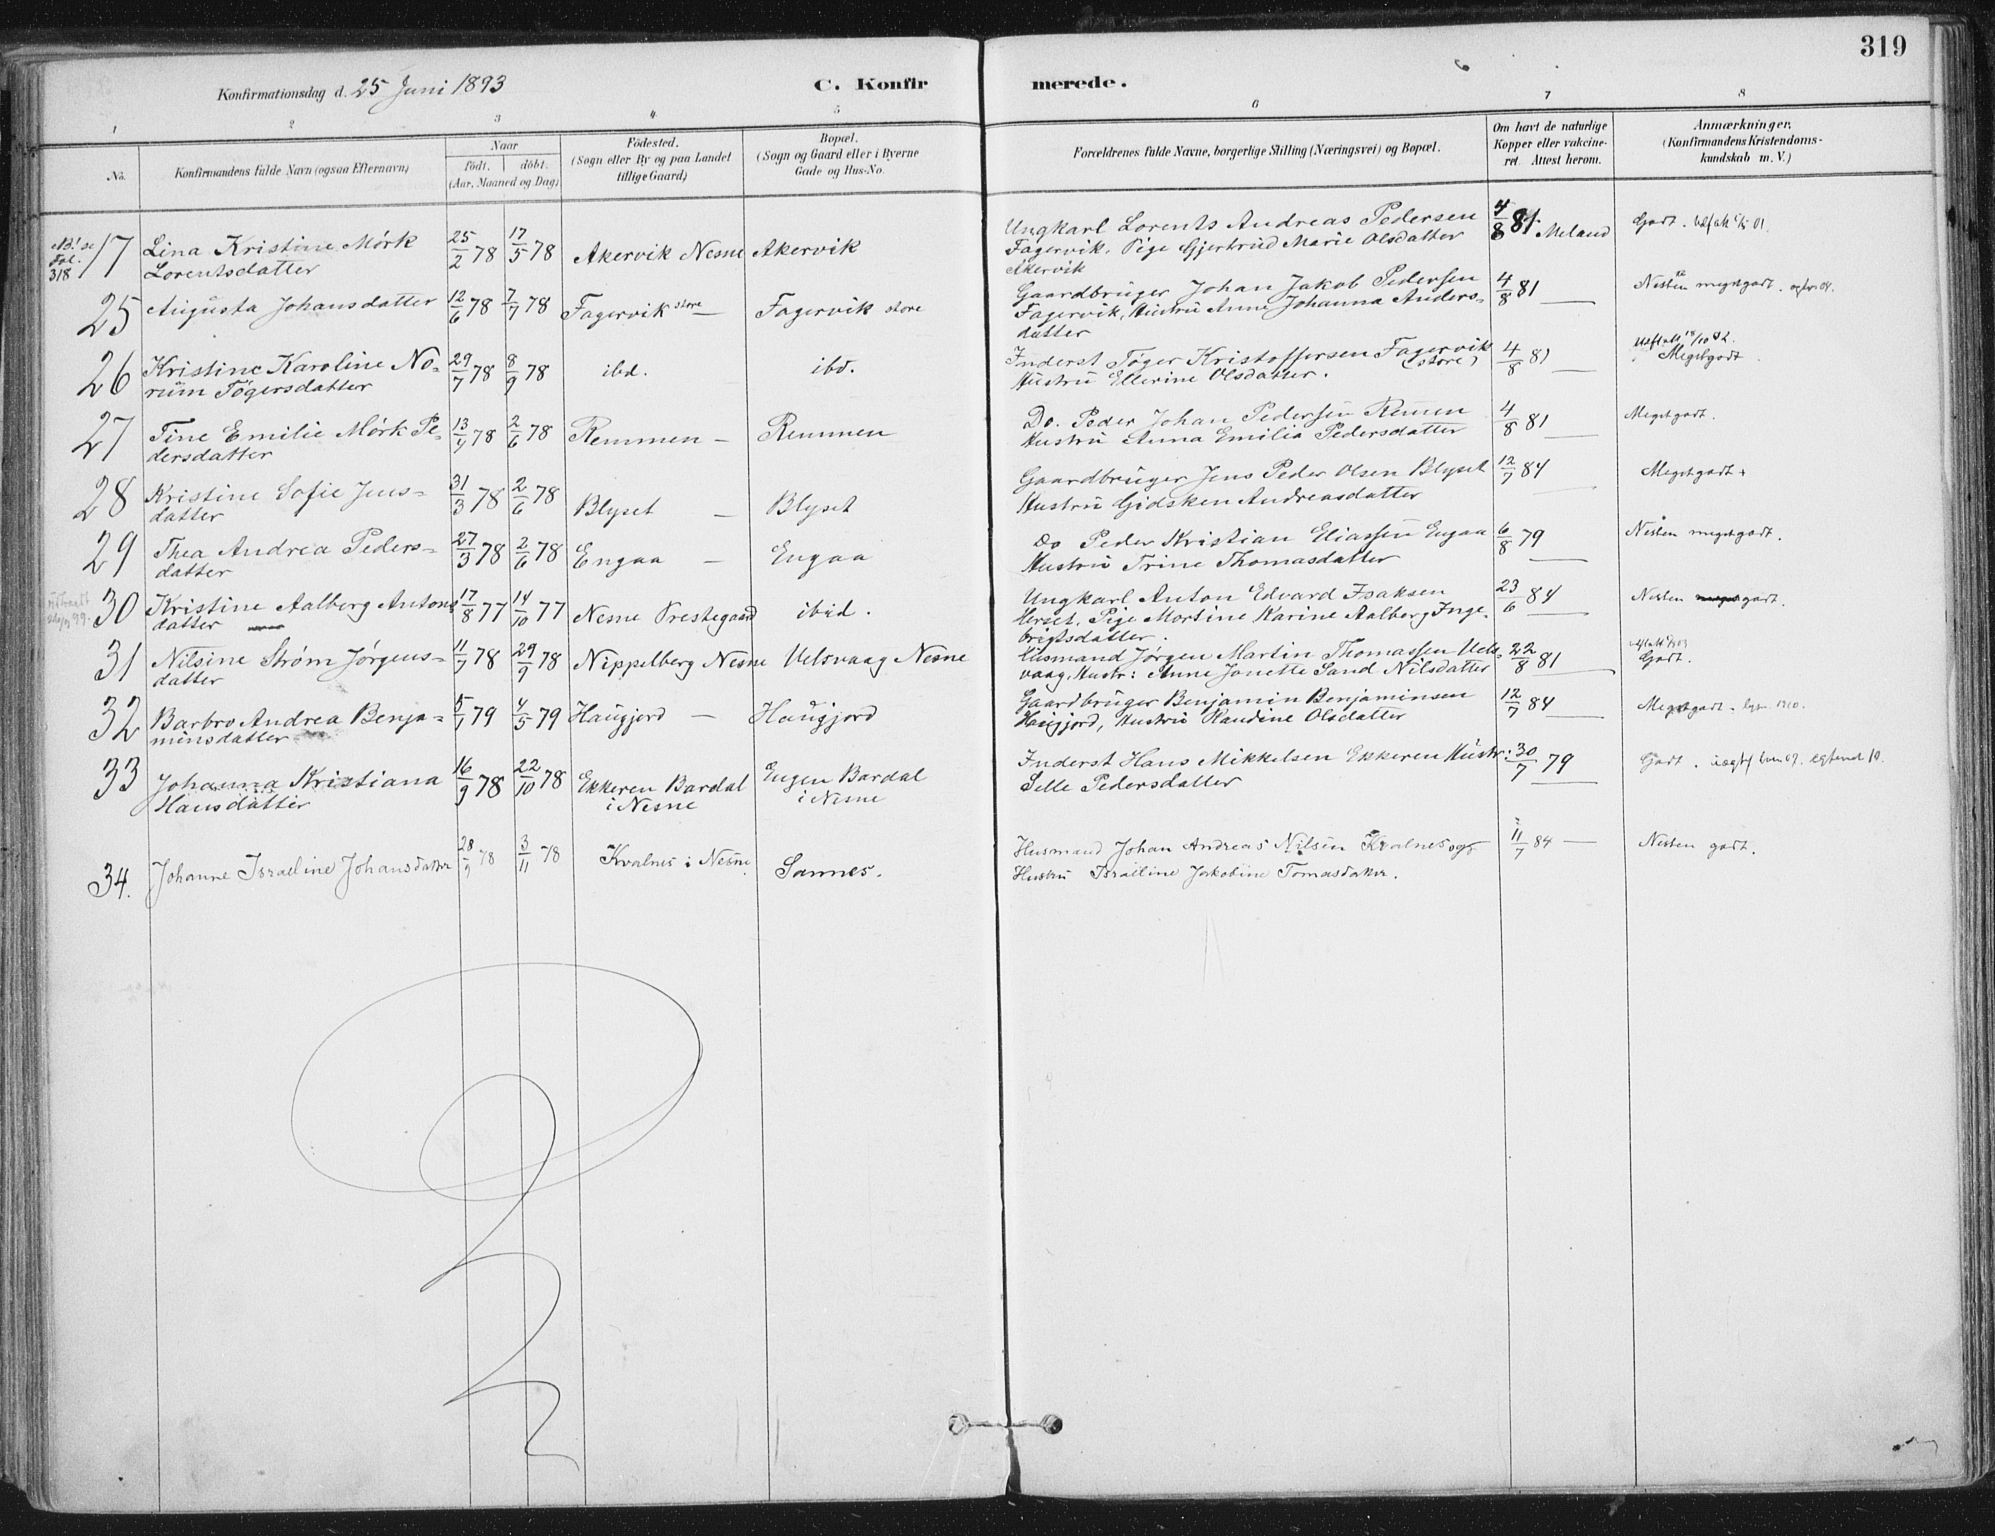 319
Konfirmationsdag d. 25 Juni 1893
C. Konfirmerede.
1 2 3 4 5 6 7 8
No.
Konfirmandens fulde Navn (ogsaa Efternavn)
Naar
födt. döbt.
(Aar, Maaned og Dag)
Födested.
(Sogn eller By og paa Landet
tillige Gaard)
Bopæl.
(Sogn og Gaard eller i Byerne
Gade og Hus-No.
Forældrenes fulde Navne, borgerlige Stilling (Næringsvei) og Bopæl.
Om havt de naturlige
Kopper eller vakcine-
ret. Attest herom.
Anmærkninger.
(Konfirmandens Kristendoms-
kundskab m. V.)
NB! se
Fol.
318
17 Lina Kristine Mörk
Lorentsdatter
25/2 78 17/5 78 Akervik Nesne Akervik
Ungkarl Lorents Andreas Pedersen
Fagervik, Pige Gjertrud Marie Olsdatter
Akervik
4/8 81 Meland Godt.
25 Augusta Johansdatter 12/6 78 7/7 78 Fagervik store — Fagervik store
Gaardbruger Johan Jakob Pedersen
Fagervik, Hustru Anne Johanna Anders-
datter
4/8 81 — Nesten megetgodt.
26 Kristine Karoline No-
rum Tögersdatter
29/7 78 8/9 78 ibd. ibd.
Inderst Töger Kristoffersen Fagervik
(store)
Hustru Ellerine Olsdatter.
4/8 81 — Megetgodt
27 Tine Emilie Mörk Pe-
dersdatter
13/4 78 2/6 78 Remmen — Remmen
Do. Peder Johan Pedersen Remen
Hustru Anna Emilia Pedersdatter
4/8 81 — Megetgodt.
28 Kristine Sofie Jens-
datter
31/3 78 2/6 78 Blyset — Blyset
Gaardbruger Jens Peder Olsen Blyset
Hustru Gidsken Andreasdatter
12/7 84 — Megetgodt.
29 Thea Andrea Peders-
datter
27/3 78 2/6 78 Engaa — Engaa
Do Peder Kristian Eliassen Engaa
Hustru Trine Thomasdatter
6/8 79 — Nesten megetgodt.
30 Kristine Aalberg Antons
datter
17/8 77 14/10 77 Nesne Prestegaard ibid.
Ungkarl Anton Edvard Isaksen
Herset, Pige Mortine Karine Aalberg Inge-
brigtsdatter.
23/6 84 — Nesten meget godt.
31 Nilsine Ström Jörgens-
datter
11/7 78 29/9 78 Nippelberg Nesne Velsvaag Nesne
Husmand Jörgen Martin Thomassen Vels-
vaag, Hustr: Anne Jonette Sand Nilsdatter
22/8 81 — Godt.
32 Barbro Andrea Benja-
minsdatter
5/1 79 4/5 79 Haugjord — Haugjord
Gaardbruger Benjamin Benjaminsen
Haugjord, Hustru Randine Olsdatter
12/7 84 — Megetgodt.
33 Johanna Kristiana
Hansdatter
16/9 78 22/10 78 Ekkeren Bardal
i Nesne
Engen Bardal
i Nesne
Inderst Hans Mikkelsen Ekkeren Hustr:
Selle Pedersdatter
30/7 79 — Godt.
34. Johanne Israeline Johansdatter 28/9 78 3/11 78 Kvalnes i Nesne. Sannes.
Husmand Johan Andreas Nilsen Kvalnes og
Hustru Israeline Jakobine Tomasdatter.
11/7 84 — Nesten godt.